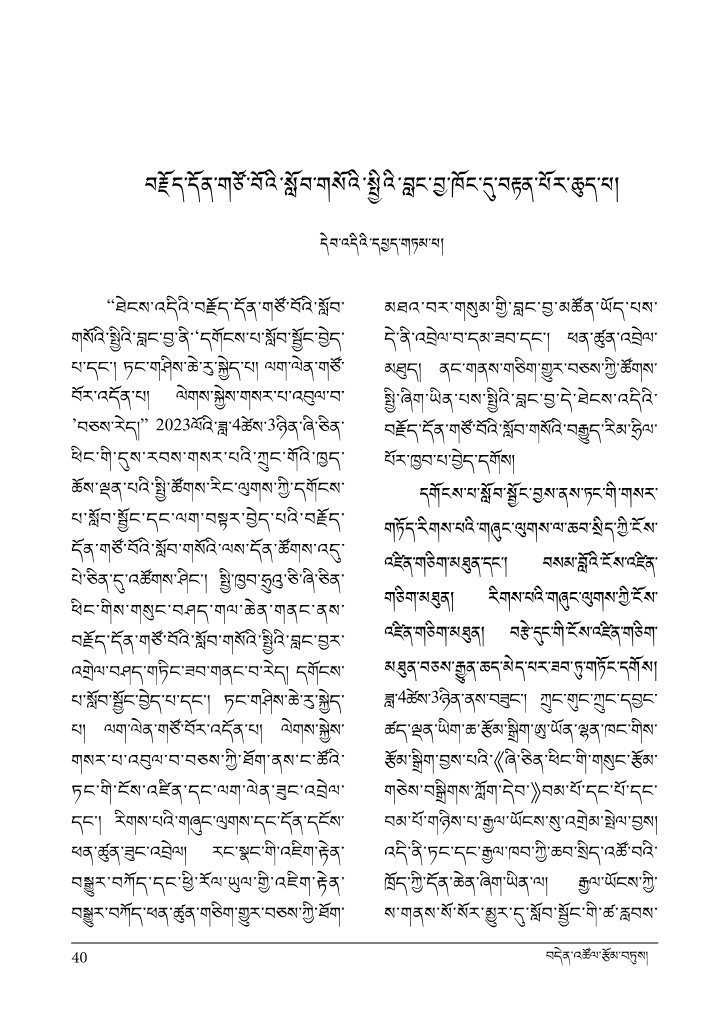 བརྗོད་དོན་གཙོ་བོའི་སློབ་གསོའི་སྤྱིའི་བླང་བྱ་ཁོང་དུ་བརྟན་པོར་ཆུད་པ།
དེབ་འདིའི་དཔྱད་གཏམ་པ།
“ཐེངས་འདིའི་བརྗོད་དོན་གཙོ་བོའི་སློབ་
གསོའི་སྤྱིའི་བླང་བྱ་ནི་‘དགོངས་པ་སློབ་སྦྱོང་བྱེད་
པ་དང་། ཏང་གཤིས་ཆེ་རུ་སྐྱེད་པ། ལག་ལེན་གཙོ་
བོར་འདོན་པ། ལེགས་སྐྱེས་གསར་པ་འབུལ་བ་
’བཅས་རེད།” 2023ལོའི་ཟླ་4ཚེས་3ཉིན་ཞི་ཅིན་
ཕིང་གི་དུས་རབས་གསར་པའི་ཀྲུང་གོའི་ཁྱད་
ཆོས་ལྡན་པའི་སྤྱི་ཚོགས་རིང་ལུགས་ཀྱི་དགོངས་
པ་སློབ་སྦྱོང་དང་ལག་བསྟར་བྱེད་པའི་བརྗོད་
དོན་གཙོ་བོའི་སློབ་གསོའི་ལས་དོན་ཚོགས་འདུ་
པེ་ཅིན་དུ་འཚོགས་ཤིང་། སྤྱི་ཁྱབ་ཧྲུའུ་ཅི་ཞི་ཅིན་
ཕིང་གིས་གསུང་བཤད་གལ་ཆེན་གནང་ནས་
བརྗོད་དོན་གཙོ་བོའི་སློབ་གསོའི་སྤྱིའི་བླང་བྱར་
འགྲེལ་བཤད་གཏིང་ཟབ་གནང་བ་རེད། དགོངས་
པ་སློབ་སྦྱོང་བྱེད་པ་དང་། ཏང་གཤིས་ཆེ་རུ་སྐྱེད་
པ། ལག་ལེན་གཙོ་བོར་འདོན་པ། ལེགས་སྐྱེས་
གསར་པ་འབུལ་བ་བཅས་ཀྱི་ཐོག་ནས་ང་ཚོའི་
ཏང་གི་ངོས་འཛིན་དང་ལག་ལེན་ཟུང་འབྲེལ་
དང་། རིགས་པའི་གཞུང་ལུགས་དང་དོན་དངོས་
ཕན་ཚུན་ཟུང་འབྲེལ། རང་སྣང་གི་འཇིག་རྟེན་
བསྒྱུར་བཀོད་དང་ཕྱི་རོལ་ཡུལ་གྱི་འཇིག་རྟེན་
བསྒྱུར་བཀོད་ཕན་ཚུན་གཅིག་གྱུར་བཅས་ཀྱི་ཐོག་
མཐའ་བར་གསུམ་གྱི་བླང་བྱ་མཚོན་ཡོད་པས་
དེ་ནི་འབྲེལ་བ་དམ་ཟབ་དང་། ཕན་ཚུན་འབྲེལ་
མཐུད། ནང་གནས་གཅིག་གྱུར་བཅས་ཀྱི་ཚོགས་
སྤྱི་ཞིག་ཡིན་པས་སྤྱིའི་བླང་བྱ་དེ་ཐེངས་འདིའི་
བརྗོད་དོན་གཙོ་བོའི་སློབ་གསོའི་བརྒྱུད་རིམ་ཧྲིལ་
པོར་ཁྱབ་པ་བྱེད་དགོས།
དགོངས་པ་སློབ་སྦྱོང་བྱས་ནས་ཏང་གི་གསར་
གཏོད་རིགས་པའི་གཞུང་ལུགས་ལ་ཆབ་སྲིད་ཀྱི་ངོས་
འཛིན་གཅིག་མཐུན་དང་། བསམ་བློའི་ངོས་འཛིན་
གཅིག་མཐུན། རིགས་པའི་གཞུང་ལུགས་ཀྱི་ངོས་
འཛིན་གཅིག་མཐུན། བརྩེ་དུང་གི་ངོས་འཛིན་གཅིག་
མཐུན་བཅས་རྒྱུན་ཆད་མེད་པར་ཟབ་ཏུ་གཏོང་དགོས།
ཟླ་4ཚེས་3ཉིན་ནས་བཟུང་། ཀྲུང་གུང་ཀྲུང་དབྱང་
ཚད་ལྡན་ཡིག་ཆ་རྩོམ་སྒྲིག་ཨུ་ཡོན་ལྷན་ཁང་གིས་
རྩོམ་སྒྲིག་བྱས་པའི་《ཞི་ཅིན་ཕིང་གི་གསུང་རྩོམ་
གཅེས་བསྒྲིགས་ཀློག་དེབ་》བམ་པོ་དང་པོ་དང་
བམ་པོ་གཉིས་པ་རྒྱལ་ཡོངས་སུ་འགྲེམ་སྤེལ་བྱས།
འདི་ནི་ཏང་དང་རྒྱལ་ཁབ་ཀྱི་ཆབ་སྲིད་འཚོ་བའི་
ཁྲོད་ཀྱི་དོན་ཆེན་ཞིག་ཡིན་ལ། རྒྱལ་ཡོངས་ཀྱི་
ས་གནས་སོ་སོར་མྱུར་དུ་སློབ་སྦྱོང་གི་ཚ་རླབས་
40
བདེན་འཚོལ་རྩོམ་བཏུས།